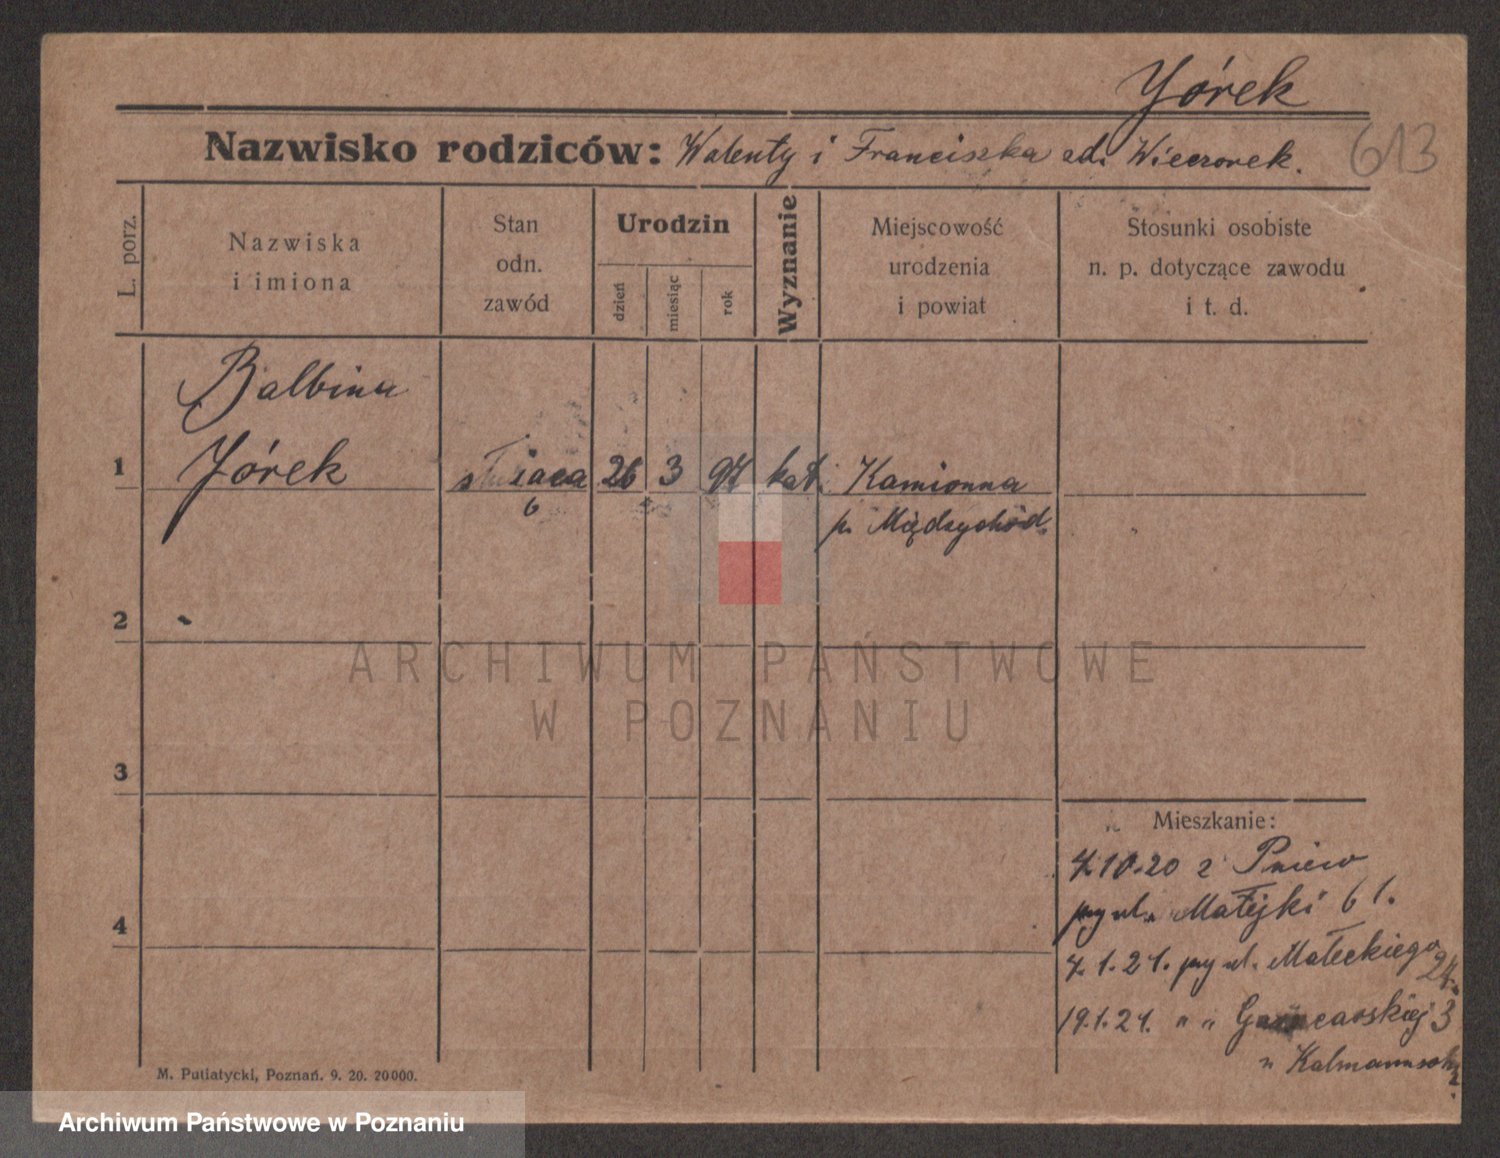 Yórek
613
Nazwisko rodziców: Walenty i Franciszka ad. Wieczorek.
L. porz.
Nazwiska
i imiona
Stan
odn.
zawód
Urodzin
dzień
miesiąc
rok
Wyznanie
Miejscowość
urodzenia
i powiat
Stosunki osobiste
n. p. dotyczące zawodu
i t. d.
Balbina
1 Yórek służąca 26 3 97 kat. Kamionna
p. Międzychód.
2
3
4
Mieszkanie:
7.10.20 z Pniew
przy ul. Matejki 61.
7.1.21. przy ul. Małeckiego 24.
19.1.21. " " 3
M. Putiatycki, Poznań. 9. 20. 20000.
ARCHIWUM PAŃSTWOWE
W POZNANIU
Archiwum Państwowe w Poznaniu